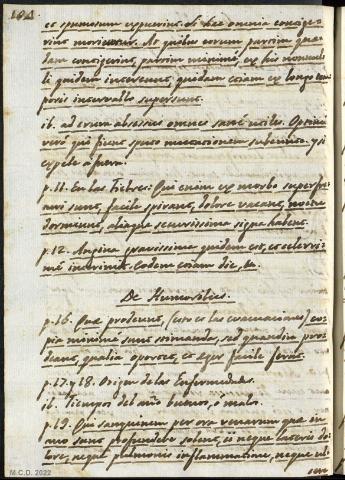 104.
et spumosum expuerint si hæc omnia contige-
rint moriuntur. At quibus eorum partim quæ-
dam contigerint, partim minimè, ex his nonnul-
li quidem intereunt, quidam etiam ex longo tem-
poris intervallo supersunt.
ib. ad erum abscessus omnes sunt utiles. Optimi
verò qui fiunt sputo mutationem subeunte y si
expele a fuera.
p. 11. En las Fiebres: Qui enim ex morbo superfu-
turi sunt, facile spirant, dolore vacant, nocte
dormiunt, aliaque securissima signa habent.
p. 12. Angina gravissima quidem est, et celerri-
mè interimit. Eodem etiam die, &c.
De Humoribus.
p. 16. Quæ prodeunt, (esto es las evacuaciones) co-
pia minimè sunt estimanda, sed quandiu pro-
deant, qualia oportet, et æger facile ferat.
p. 17. y 18. Origen de las Enfermedades.
ib. Tiempos del año buenos, ò malos.
p. 19. Qui sanguinem per ora venarum quæ in
ano sunt profundere solent, ii neque lateris do-
lore, neque pulmonis inflammatione, neque ul-
cere
M.C.D. 2022